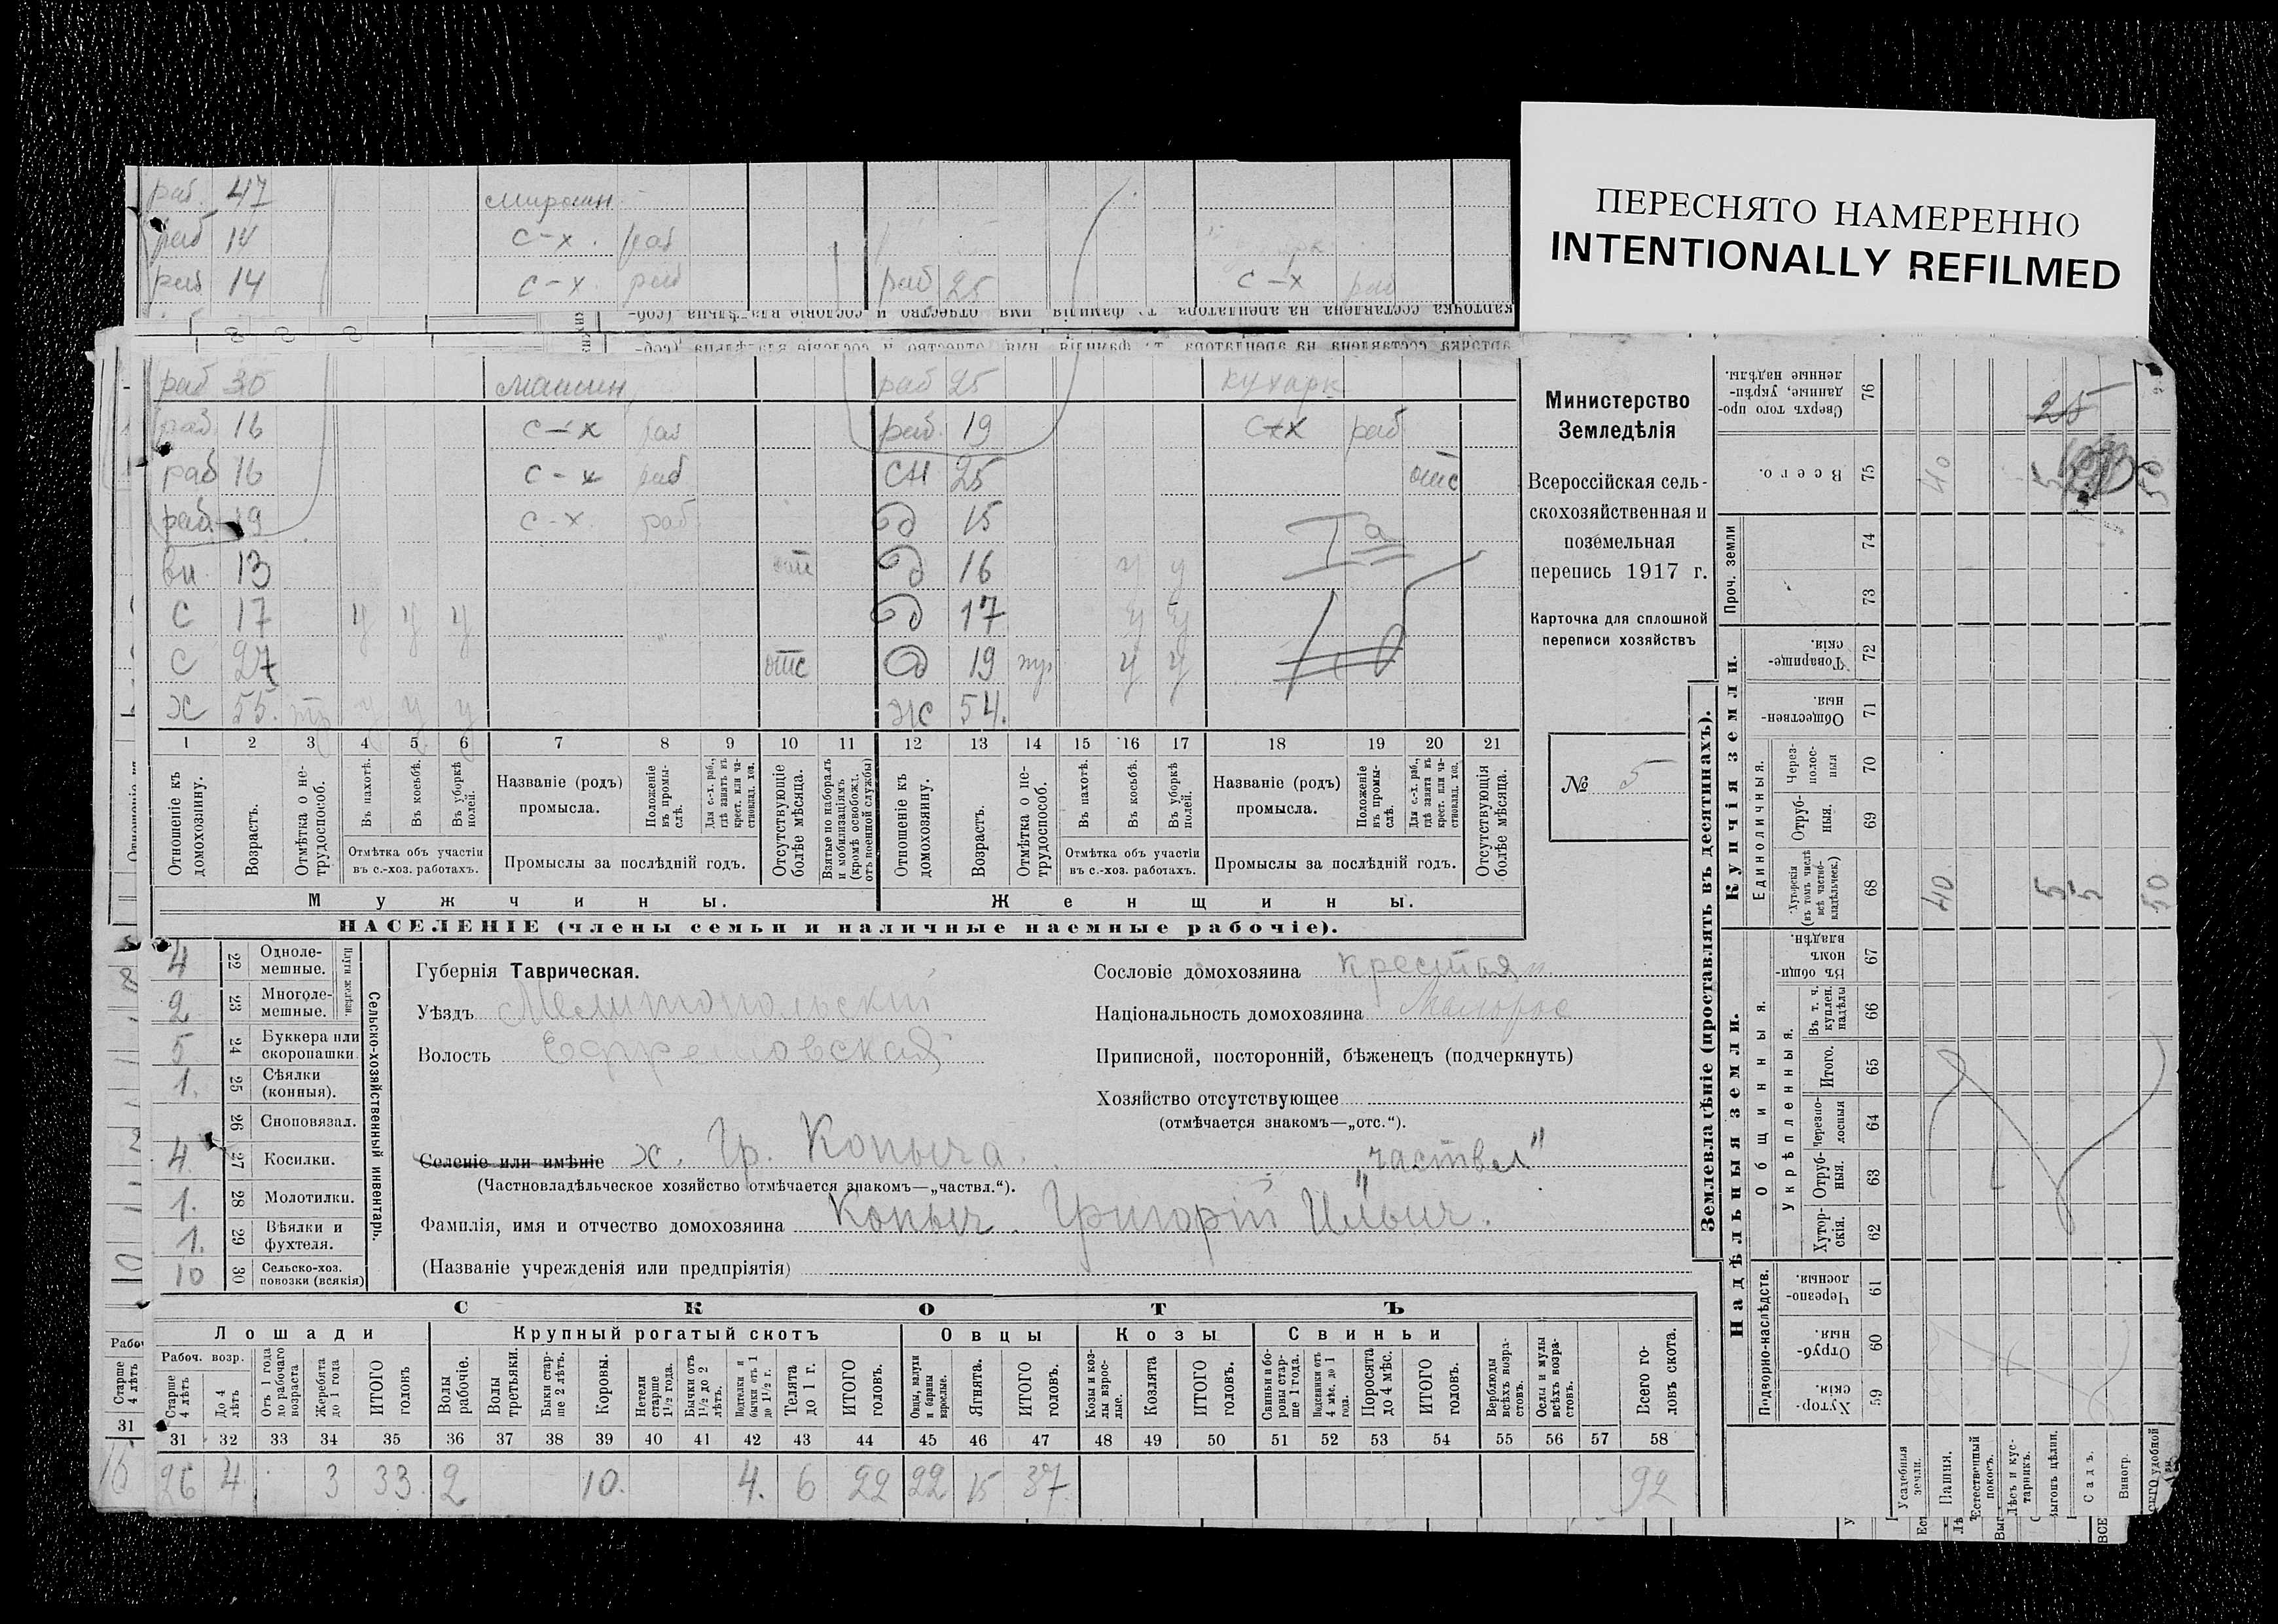 ПЕРЕСНЯТО НАМЕРЕННО
INTENTIONALLY REFILMED
раб. 47
раб 14 с-х. раб
раб 14 с-х. раб раб 25 с-х раб
раб 30 машин раб 25 кухарк
раб 16 с-х раб раб. 19 с-х раб
раб 16 с-х раб сн 25 отс
раб 19 с-х. раб д 15
вн. 13 отс д 16 у у
с 17 у у у д 17 у у
с 27 отс д 19 у у
х 55. у у у ж 54.
Iа
1 2 3 4 5 6 7 8 9 10 11 12 13 14 15 16 17 18 19 20 21
Отношеніе къ домохозяину.
Возрастъ.
Отмѣтка о не-трудоспособ.
Въ пахотѣ.
Въ косьбѣ.
Въ уборкѣ полей.
Отмѣтка объ участіи въ с.-хоз. работахъ.
Названіе (родъ) промысла.
Положеніе въ промы-слѣ.
Для с.-х. раб., гдѣ занятъ въ крест. или ча-стновлад. хоз.
Промыслы за послѣдній годъ.
Отсутствующіе болѣе мѣсяца.
Взятые по наборамъ и мобилизаціямъ (кромѣ освобожд. отъ военной службы)
Отношеніе къ домохозяину.
Возрастъ.
Отмѣтка о не-трудоспособ.
Въ пахотѣ.
Въ косьбѣ.
Въ уборкѣ полей.
Отмѣтка объ участіи въ с.-хоз. работахъ.
Названіе (родъ) промысла.
Положеніе въ промы-слѣ.
Для с.-х. раб., гдѣ занята въ крест. или ча-стновлад. хоз.
Промыслы за послѣдній годъ.
Отсутствующія болѣе мѣсяца.
Мужчины. Женщины.
НАСЕЛЕНІЕ (члены семьи и наличные наемные рабочіе).
Министерство
Земледѣлія
Всероссійская сель-
скохозяйственная и
поземельная
перепись 1917 г.
Карточка для сплошной
переписи хозяйствъ
№ 5
Сельско-хозяйственный инвентарь.
Плуги желѣзн.
4 22 Одноле-мешные.
2 23 Многоле-мешные.
5 24 Буккера или скоропашки.
1. 25 Сѣялки (конныя).
26 Сноповязал.
4. 27 Косилки.
1. 28 Молотилки.
1. 29 Вѣялки и фухтеля.
10 30 Сельско-хоз. повозки (всякія)
Губернія Таврическая.
Уѣздъ Мелитопольскій
Волость Ефремовская
Селеніе или имѣніе х. Гр. Копыча. „частвл"
(Частновладѣльческое хозяйство отмѣчается знакомъ—„частвл.“).
Фамилія, имя и отчество домохозяина Копыч. Григорій Ильич.
(Названіе учрежденія или предпріятія)
Сословіе домохозяина крестьян.
Національность домохозяина Малорос
Приписной, посторонній, бѣженецъ (подчеркнуть)
Хозяйство отсутствующее
(отмѣчается знакомъ—„отс.“).
СКОТЪ
Лошади Крупный рогатый скотъ Овцы Козы Свиньи
Рабоч. возр.
Старше 4 лѣтъ
До 4 лѣтъ
Отъ 1 года до рабочаго возраста
Жеребята до 1 года
ИТОГО головъ
Волы рабочіе.
Волы третьяки.
Быки стар-ше 2 лѣтъ.
Коровы.
Нетели старше 1½ года.
Бычки отъ 1½ до 2 лѣтъ.
Подтелки и бычки отъ 1 до 1½ г.
Телята до 1 г.
ИТОГО головъ.
Овцы, валухи и бараны взрослые.
Ягнята.
ИТОГО головъ.
Козы и коз-лы взрос-лые.
Козлята
ИТОГО головъ.
Свиньи и бо-ровы стар-ше 1 года.
Подсвинки отъ 4 мѣс. до 1 года.
Поросята до 4 мѣс.
ИТОГО головъ.
Верблюды всѣхъ возра-стовъ.
Ослы и мулы всѣхъ возра-стовъ.
Всего го-ловъ скота.
31 32 33 34 35 36 37 38 39 40 41 42 43 44 45 46 47 48 49 50 51 52 53 54 55 56 57 58
26 4 3 33. 2 10. 4. 6 22 22 15 37. 92
Землевладѣніе (проставлять въ десятинахъ).
Надѣльныя земли.
Купчія земли.
Проч. земли
Подворно-наслѣдств.
Общинныя.
Укрѣпленныя.
Единоличныя.
Сверхъ того про-данные, укрѣп-ленные надѣлы. 76
Всего. 75
74
73
Товарище-скія. 72
Обществен-ныя. 71
Через-полос-ныя 70
Отруб-ныя. 69
Хуторскія (въ томъ числѣ всѣ частно-владѣльческ.) 68
Въ общин-номъ владѣн. 67
Въ т. ч. куплен. надѣлы 66
Итого. 65
Черезпо-лосныя 64
Отруб-ныя. 63
Хутор-скія. 62
Черезпо-лосныя. 61
Отруб-ныя. 60
Хутор-скія. 59
25
40 5 50
40 5 5 50
Усадебныя земли.
Пашня.
Естественный покосъ.
Лѣсъ и кус-тарникъ.
Выгонъ цѣлин.
Садъ.
Виногр.